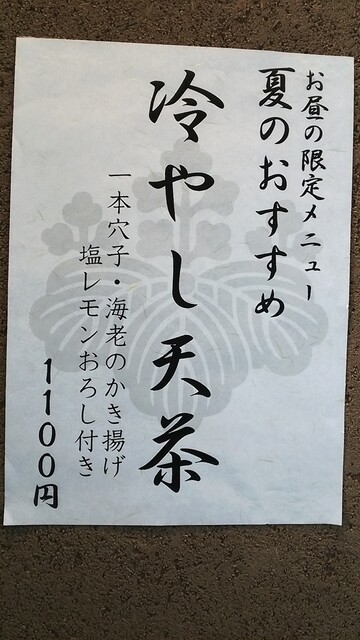 お昼の限定メニュー
夏のおすすめ
冷やし天茶
一本穴子・海老のかき揚げ
塩レモンおろし付き
1100円